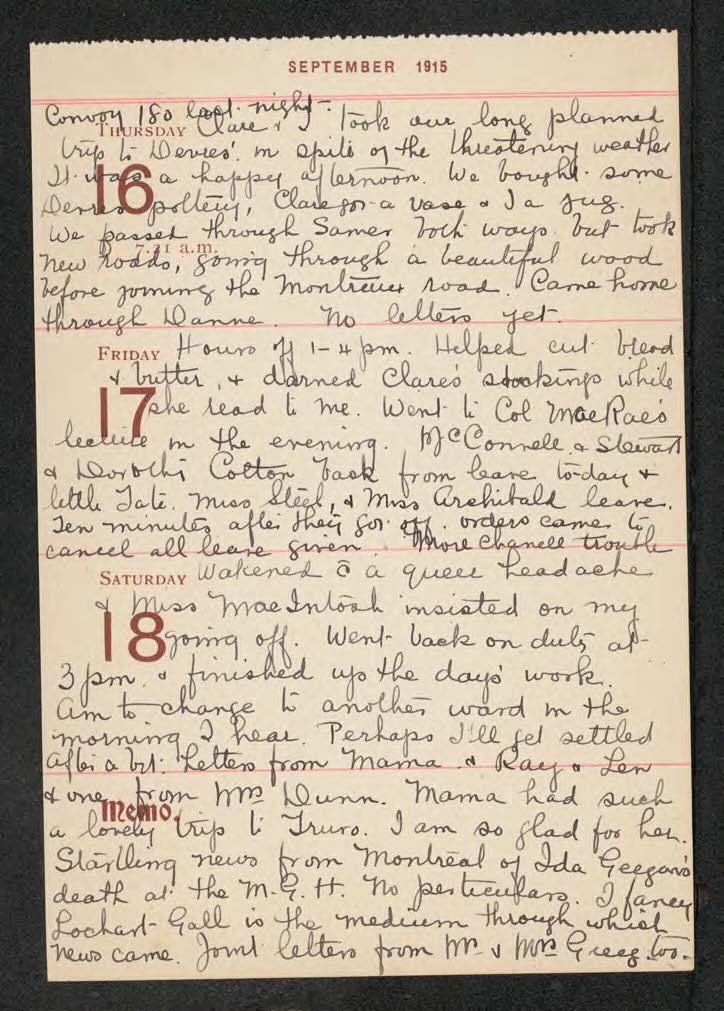 SEPTEMBER 1915
Convoy 180 last night.
THURSDAY Clare & I took our long planned
trip to Devres' in spite of the threatening weather
16
It was a happy afternoon. We bought some
Devres pottery, Clare got a vase & I a jug.
We passed through Samer both ways but took
7.31 a.m.
new roads, going through a beautiful wood
before joining the Montreux road. Came home
through Danne. No letters yet.
FRIDAY Hours off 1-4 pm. Helped cut bread
& butter, & darned Clare's stockings while
17 she read to me. Went to Col MacRae's
lecture in the evening. McConnell & Stewart
& Dorothy Cotton back from leave to-day &
little Tate. Miss Steel, & Miss Archibald leave.
Ten minutes after they got off orders came to
cancel all leave given. More Chanell trouble
SATURDAY Wakened c̄ a queer headache
& Miss MacIntosh insisted on my
18 going off. Went back on duty at
3 pm. & finished up the days' work.
Am to change to another ward in the
morning I hear. Perhaps I'll get settled
after a bit. Letters from Mama & Ray & Len
& one from Mrs Dunn. Mama had such
Memo.
a lovely trip to Truro. I am so glad for her.
Startling news from Montreal of Ida
death at the M.G.H. No particulars. I fancy
Lochart Gall is the medium through which
news came. Joint letters from Mr. & Mrs Greeg too.